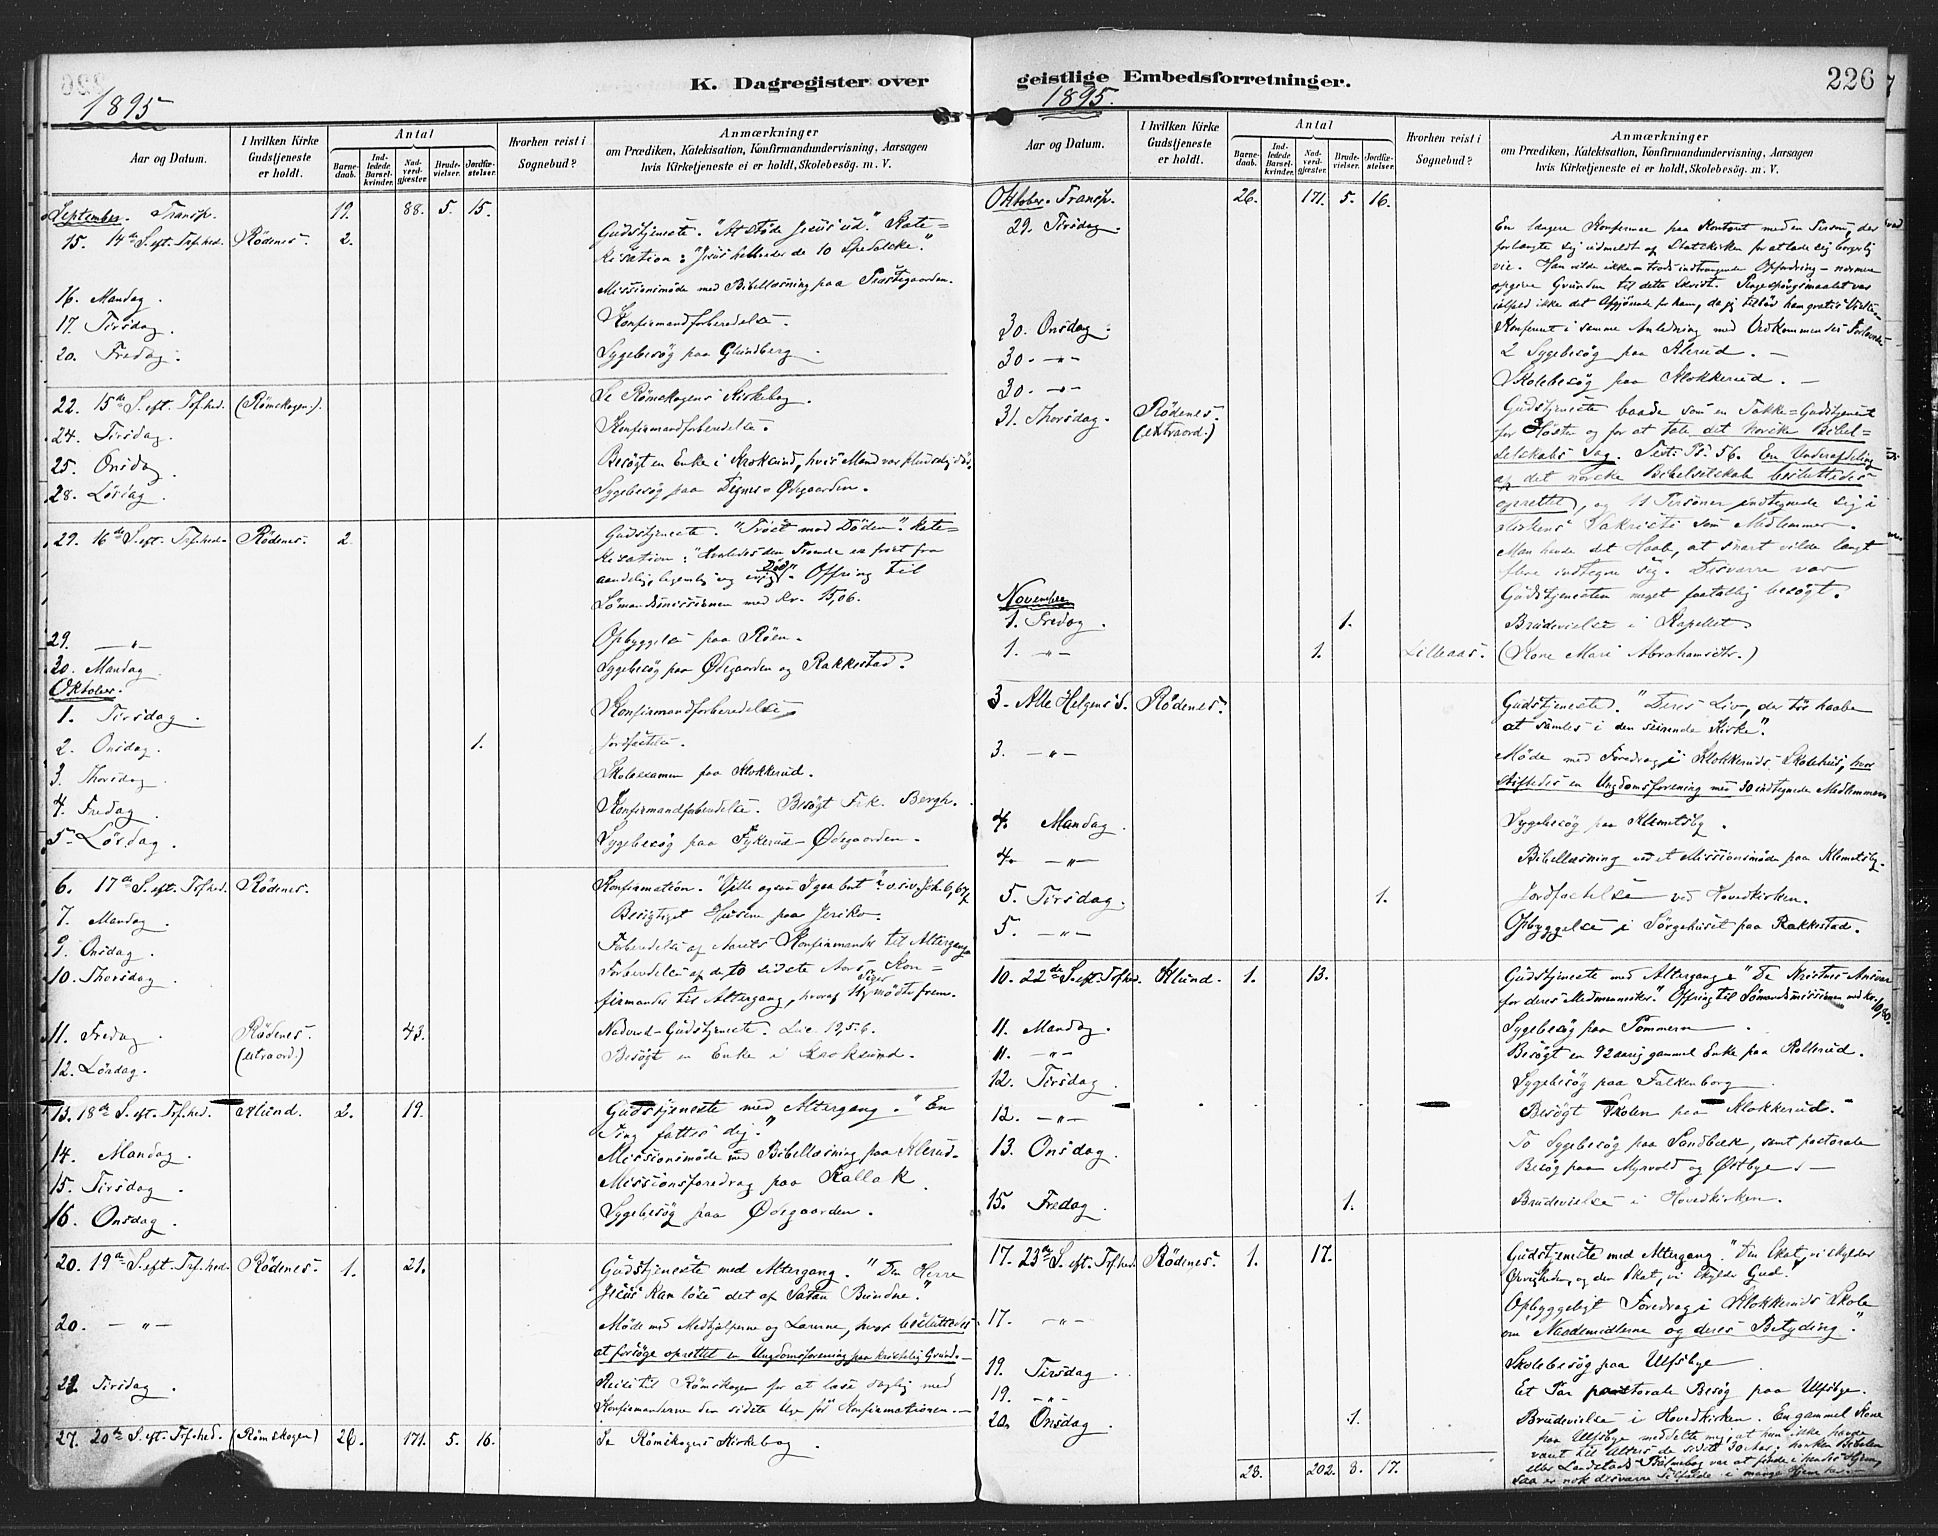 K. Dagregister over
1895
Aar og Datum.
I hvilken Kirke Gudstjeneste er holdt.
Antal
Barnedaab.
Indledede Barselkvinder.
Nadverdgjæster.
Brudevielser.
Jordfæstelser.
Hvorhen reist i Sognebud?
Anmærkninger
om Prædiken, Katekisation, Konfirmandundervisning, Aarsagen
hvis Kirketjeneste ei er holdt, Skolebesøg. m. V.
September. Transp. 19. 88. 5. 15.
15. 14de S. eft. Tref.hed. Rödenes. 2. Gudstjeneste. "At støde Jesus ud." Kate=
kisation: "Jesus helbreder de 10 Spedalske."
16. Mandag. Missionsmöde med Bibellæsning paa Præstegaarden.
17. Tirsdag. Konfirmandforberedelse.
20. Fredag. Sygebesög paa Glundberg.
22. 15de S. eft. Tref.hed. (Römskogen). Se Römskogens Kirkebog.
24. Tirsdag. Konfirmandforberedelse.
25. Onsdag. Besögt en Enke i Kroksund, hvis Mand var pludselig död.
28. Lördag. Sygebesög paa Degnes-Ödegaarden.
29. 16de S. eft. Tref.hed. Rödenes. 2. Gudstjeneste. "Tröst mod Döden". Kate=
kisation: "Hvorledes den Troende er friet fra
aandelig, legemlig og evig Död". Offring til
Sömandsmissionen med Kr. 15,06.
29. —"— Opbyggelse paa Röen.
30. Mandag. Sygebesög paa Ödegaarden og Rakkestad.
Oktober.
1. Tirsdag. Konfirmandforberedelse
2. Onsdag. 1. Jordfæstelse.
3. Thorsdag. Skoleexamen paa Klokkerud.
4. Fredag. Konfirmandforberedelse. Besögt Frk. Bergh.
5. Lördag. Sygebesög paa Fykerud-Ödegaarden.
6. 17de S. eft. Tref.hed. Rödenes. Konfirmation. "Ville ogsaa I gaa bort" Joh. 6, 67
7. Mandag. Besigtiget Husene paa Jeriko.
9. Onsdag. Forberedelse af Aarets Konfirmander til Altergang
10. Thorsdag. Forberedelse af de to sidste Aars Kon=
firmander til Altergang, hvoraf mödte frem.
11. Fredag. Rödenes. (extraord.) 43. Nadverd-Gudstjeneste. Luc. 19,5.6.
12. Lördag. Besögt en Enke i Kroksund.
13. 18de S. eft. Tref.hed. Klund. 2. 19. Gudstjeneste med Altergang. "En
Ting fattes dig."
14. Mandag. Missionsmöde med Bibellæsning paa Klerud.
15. Tirsdag. Missionsforedrag paa Kallak
16. Onsdag. Sygebesög paa Ödegaarden.
20. 19de S. eft. Tref.hed. Rödenes. 1. 21. Gudstjeneste med Altergang. "Den Herre
Jesus kan löse det af Satan Bundne."
20. —"— Möde med Medhjælperne og Lærerne, hvor besluttedes
at forsöge oprettet en Ungdomsforening paa kristelig Grund.
22. Tirsdag. Reise til Römskogen for at læse daglig med
Konfirmanderne den sidste Uge för Konfirmationen.
27. 20de S. eft. Tref.hed. (Römskogen) 26. 171. 5. 16. Se Römskogens Kirkebog.
geistlige Embedsforretninger.
226
1895.
Aar og Datum.
I hvilken Kirke Gudstjeneste er holdt.
Antal
Barnedaab.
Indledede Barselkvinder.
Nadverdgjæster.
Brudevielser.
Jordfæstelser.
Hvorhen reist i Sognebud?
Anmærkninger
om Prædiken, Katekisation, Konfirmandundervisning, Aarsagen
hvis Kirketjeneste ei er holdt, Skolebesøg. m. V.
Oktober. Transp. 26. 171. 5. 16.
29. Tirsdag. En længere Konferance paa Kontoret med en Person, der
forlangte sig udmeldt af Statskirken for at lade sig borgerlig
vie. Han vilde ikke – trods indtrængende Opfordring – nærmere
opgive Grunden til dette Skridt.
ialfald ikke det Afgjörende for ham, da jeg tilböd ham gratis Vielse
30. Onsdag. Konferent i samme Anledning med Vedkommendes Forlovede
30. —"— 2 Sygebesög paa Klerud.
30. —"— Skolebesög paa Klokkerud.
31. Thorsdag. Rödenes. (extraord.) Gudstjeneste baade som en Takke-Gudstjeneste
for Hösten og for at tale det norske Bibel=
selskabs Sag. Text: Ps. 56. En Underafdeling
af det norske Bibelselskab besluttedes
oprettet, og 11 Personer indtegnede sig i
Kirkens Sakristi som Medlemmer.
Man havde det Haab, at snart vilde langt
flere indtegne sig. Desværre var
Gudstjenesten meget faatallig besögt.
November
1. Fredag. 1. Brudevielse i Kapellet
1. —"— 1. Lilleaas. (Kone Mari Abrahamsdtr.)
3. Alle Helgens S. Rödenes. Gudstjeneste. "Deres Liv, der tör haabe
at samles i den seirende Kirke".
3. —"— Möde med Foredrag i Klokkeruds Skolehus, hvor
stiftedes en Ungdomsforening med 30 indtegnede Medlemmer
4. Mandag. Sygebesög paa Klemetsby.
4. —"— Bibellæsning ved et Missionsmöde paa Klemetsby.
5. Tirsdag. 1. Jordfæstelse ved Hovedkirken.
5. —"— Opbyggelse i Sörgehuset paa Rakkestad.
10. 22de S. eft. Tref.hed. Klund. 1. 13. Gudstjeneste med Altergang. "De Kristnes Ansvar
for deres Medmennesker." Offring til Sömandsmissionen med Kr. 10,80.
11. Mandag. Sygebesög paa Pommern
11. —"— Besögt en 92aarig gammel Enke paa Rollerud.
12. Tirsdag. Sygebesög paa Falkenborg
12. —"— Besögt Skolen paa Klokkerud.
13. Onsdag. To Sygebesög paa Sandbæk, samt pastorale
Besög paa Myrvold og Östbye.
15. Fredag. 1. Brudevielse i Hovedkirken.
17. 23de S. eft. Tref.hed. Rödenes. 1. 17. Gudstjeneste med Altergang. "Den Skat, vi skylder
Övrigheden, og den Skat, vi skylde Gud."
17. —"— Opbyggeligt Foredrag i Klokkeruds Skole
om "Naademidlerne og deres Betyding".
19. Tirsdag. Skolebesög paa Ulfsbye
19. —"— Et Par pastorale Besög paa Ulfsbye.
20. Onsdag. 1. Brudevielse i Hovedkirken. En gammel Kone
paa Ulfsbye meddelte mig, at hun ikke havde
været til Alters de sidste 30 Aar; hverken Bibelen
eller Landstads Psalmebog var at finde i hendes Hjem;
saa er nok desværre Tilfælde i mange Hjem her.
28. 202. 8. 17.